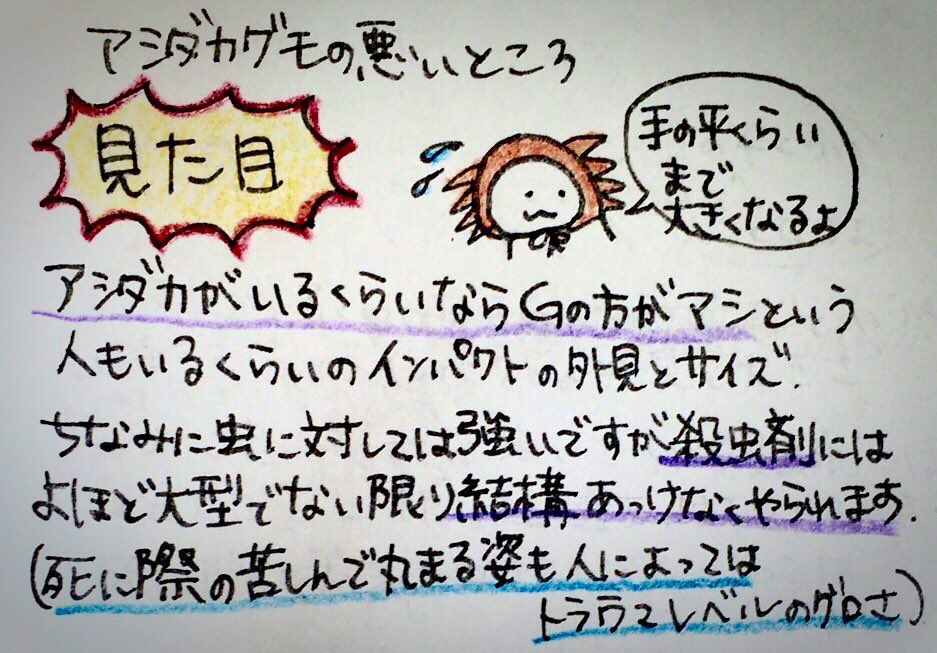 アシダカグモの悪いところ
見た目
手の平くらい
まで
大きくなるよ
アシダカがいるくらいならGの方がマシという
人もいるくらいのインパクトの外見とサイズ.
ちなみに虫に対しては強いですが殺虫剤には
よほど大型でない限り結構あっけなくやられます.
(死に際の苦しんで丸まる姿も人によっては
トラウマレベルのグロさ)